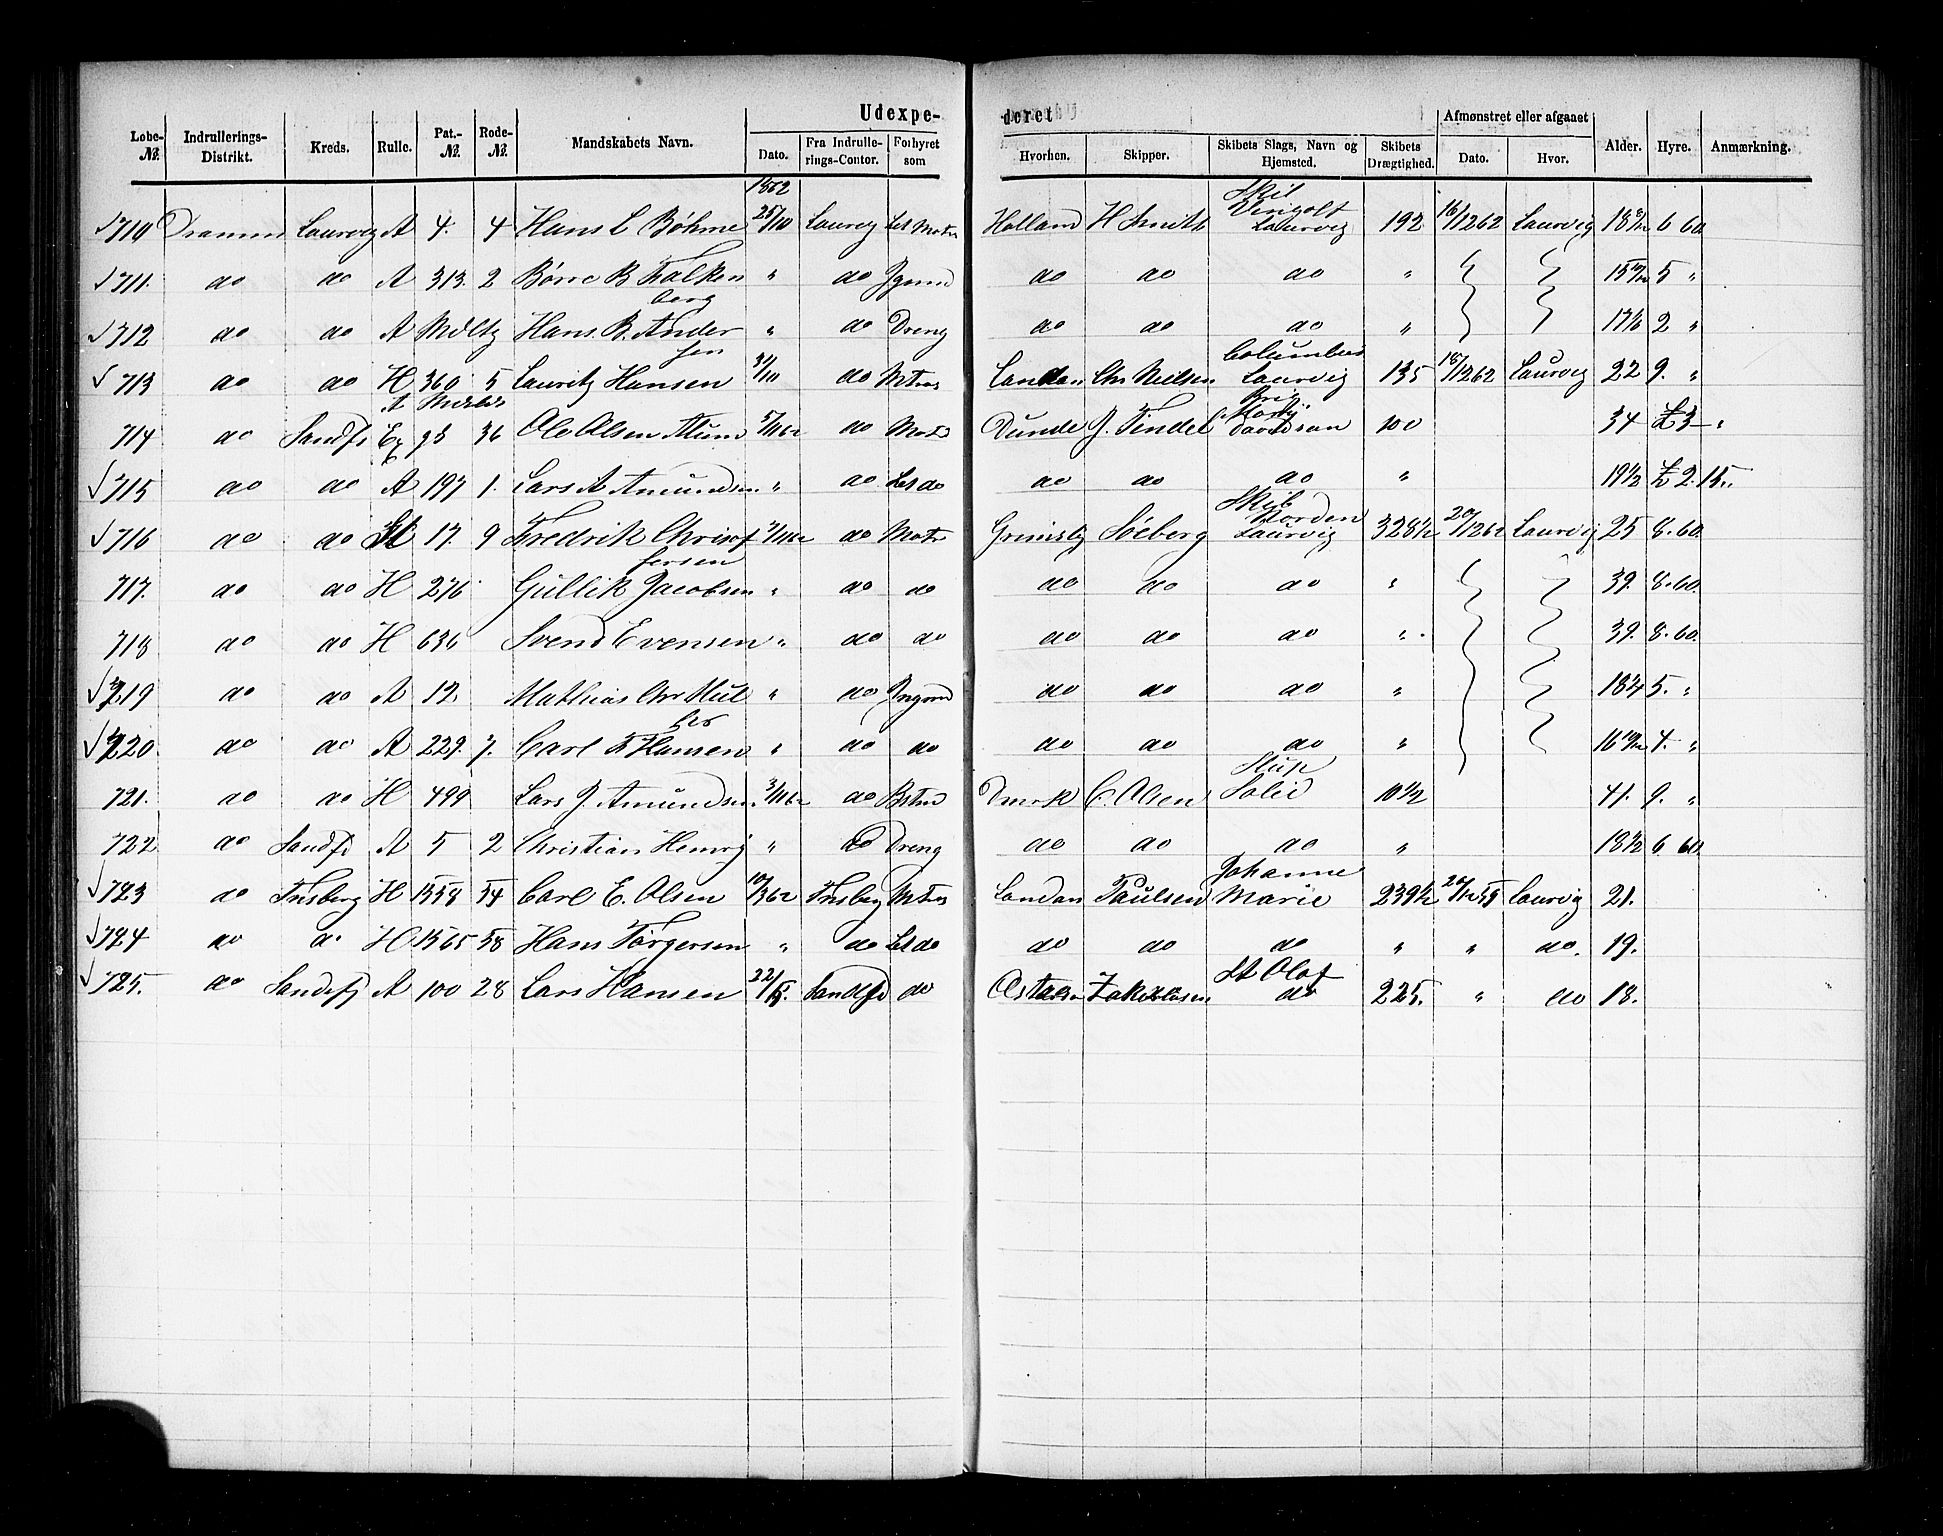 Udexpe- deret
Afmønstret eller afgaaet
Løbe-№. Indrullerings-Distrikt. Kreds. Rulle. Pat.-№. Rode-№. Mandskabets Navn. Dato. Fra Indrulle-rings-Contor. Forhyret som Hvorhen. Skipper. Skibets Slags, Navn og Hjemsted. Skibets Drægtighed. Dato. Hvor. Alder. Hyre. Anmærkning.
1862
710 Drammen Laurvig A 4. 4 Hans L Bøhme 25/10 Laurvig Let Matr Holland H Smith Skib Laurvig 192 16/12 62 Laurvig 18 6 60.
711. do do A 313. 2 Børre B Falkenberg " do Jgmd do do do " 15 10/12 5 "
712 do do A Hans B. Andersen " do Dreng do do do " 17 2 "
713 do do H 360 5 Lauritz Hansen 31/10 do Mtros London Chr Nielsen Columbus Laurvig 135 18/12 62 Laurvig 22 9. "
714 do Sandfj Ex 93 36 Ole Olsen 5/11 62 do Matr Dunde J. Tindel Brig Davidson 100 34 £3 "
715 do do A 197 1. Lars A Amundsen " do Let do do do do " 19 1/2 £2. 15.
716 do do 17. 9 Fredrik Christofersen 7/11 62 do Matr Grimsby Søeberg Skib Norden Laurvig 328 1/2 20/12 62 Laurvig 25 8. 60.
717. do do H 276 Gullik Jacobsen " do do do do do " 39. 8. 60.
718 do do H 636 Svend Evensen " do do do do do " 39. 8. 60.
719 do do A 12. Mathias Chr " do Jngmd do do do " 18 1/4 5. "
720. do do A 229. 7. Carl F Hansen " do do do do do " 16 10/12 4. "
721. do do H 499 Lars J Amundsen 3/11 62 do Bstmd Dmrk C. Olsen Slup Solid 10 1/2 41. 9. "
722 do Sandfj A 5 2 Christian " do Dreng do do do " 18 1/2 6 60.
723 do Tnsberg H 1558 54 Carl E. Olsen 10/3 62 Tnsberg Mtros London Paulsen Johanne Marie 239 1/2 Laurvig 21.
724 do do H 1565 58 Hans Torgersen " do Let do do do do " " do. 19.
725. do Sandefj A 100 28 Lars Hansen Sandefj do St Olaf do 225. " do 18.